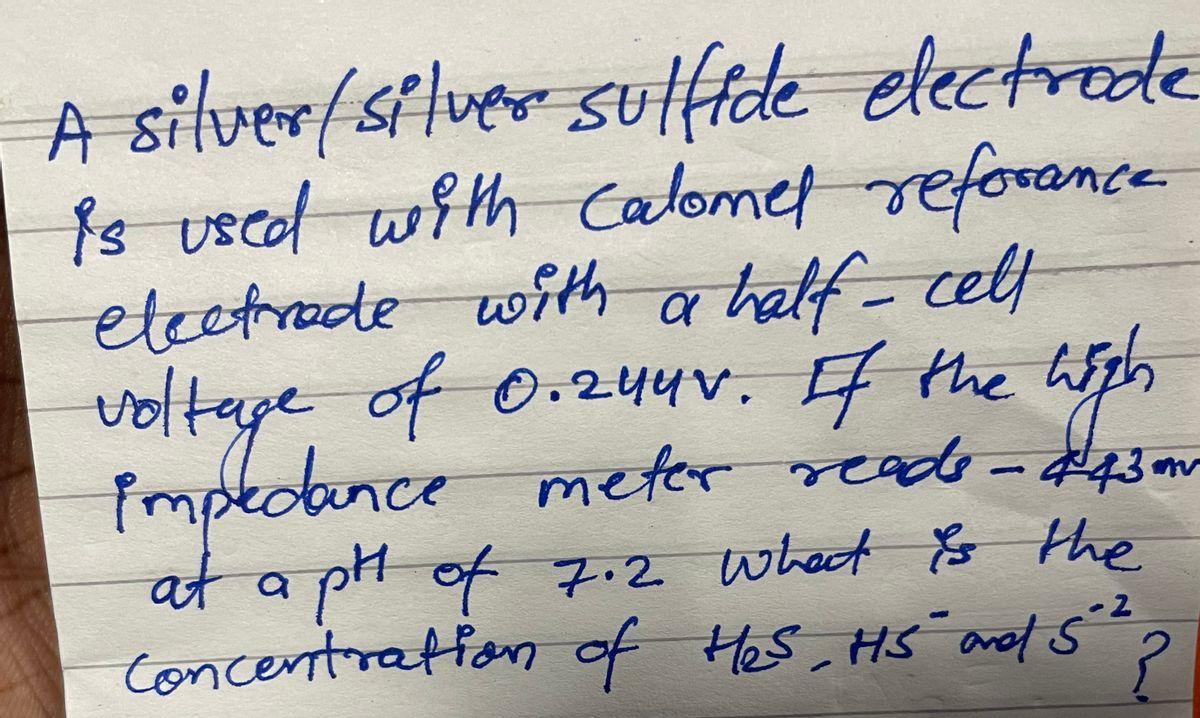 A silver/silver sulfide electrode
is used with Calomel reforance
electrode with a half-cell
voltage of 0.244v. If the high
impedance meter reads - 443 mv
at a pH of 7.2 what is the
concentration of H2S, HS⁻ and S⁻²?